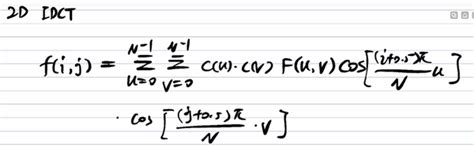 2D IDCT
f(i,j) = Σ_{u=0}^{N-1} Σ_{v=0}^{N-1} c(u)·c(v) F(u,v) cos[(i+0.5)π/N u]
· cos[(j+0.5)π/N · v]